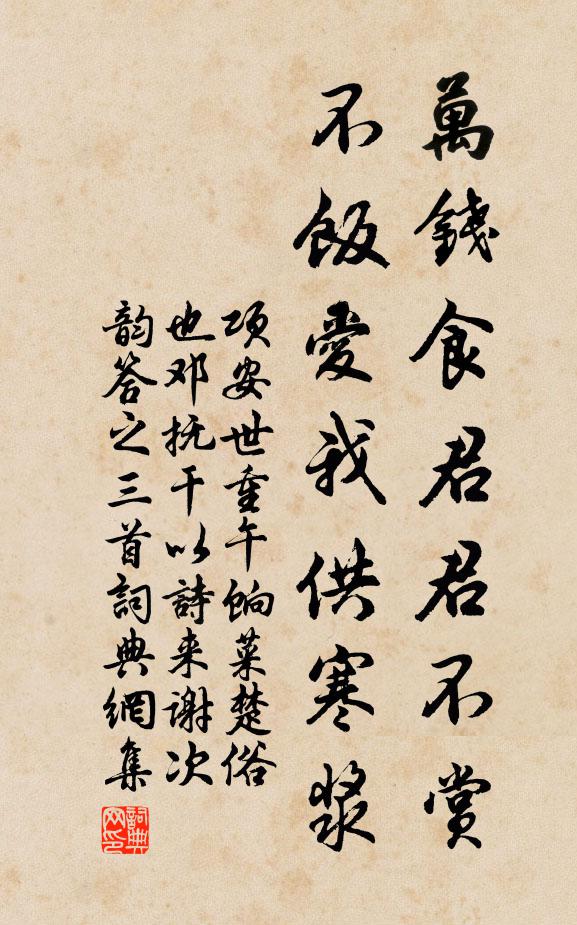 萬錢食君君不賞
不飯愛我供寒漿
項安世重午餉菜楚俗
也邓抚干以詩来谢次
韵答之三首詞典網集
詞典网印